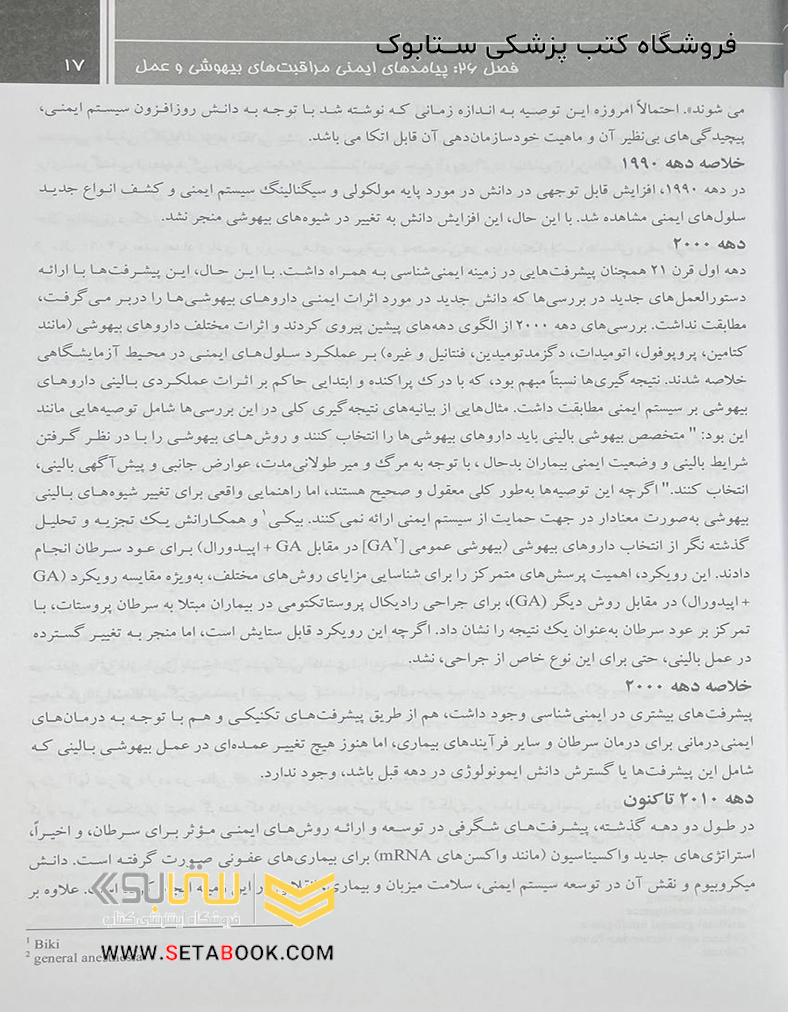 فروشگاه کتب پزشکی ستابوک
فصل ۲۶: پیامدهای ایمنی مراقبت‌های بیهوشی و عمل
۱۷
می شوند». احتمالاً امروزه این توصیه به اندازه زمانی که نوشته شد با توجه به دانش روزافزون سیستم ایمنی،
پیچیدگی‌های بی‌نظیر آن و ماهیت خودسازمان‌دهی آن قابل اتکا می باشد.
خلاصه دهه ۱۹۹۰
در دهه ۱۹۹۰، افزایش قابل توجهی در دانش در مورد پایه مولکولی و سیگنالینگ سیستم ایمنی و کشف انواع جدید
سلول‌های ایمنی مشاهده شد. با این حال، این افزایش دانش به تغییر در شیوه‌های بیهوشی منجر نشد.
دهه ۲۰۰۰
دهه اول قرن ۲۱ همچنان پیشرفت‌هایی در زمینه ایمنی‌شناسی به همراه داشت. با این حال، این پیشرفت‌ها با ارائه
دستورالعمل‌های جدید در بررسی‌ها که دانش جدید در مورد اثرات ایمنی داروهای بیهوشی‌ها را دربر می‌گرفت،
مطابقت نداشت. بررسی‌های دهه ۲۰۰۰ از الگوی دهه‌های پیشین پیروی کردند و اثرات مختلف داروهای بیهوشی (مانند
کتامین، پروپوفول، اتومیدات، دگزمدتومیدین، فنتانیل و غیره) بر عملکرد سلول‌های ایمنی در محیط آزمایشگاهی
خلاصه شدند. نتیجه‌گیری‌ها نسبتاً مبهم بود، که با درک پراکنده و ابتدایی حاکم بر اثرات عملکردی بالینی داروهای
بیهوشی بر سیستم ایمنی مطابقت داشت. مثال‌هایی از بیانیه‌های نتیجه‌گیری کلی در این بررسی‌ها شامل توصیه‌هایی مانند
این بود: " متخصص بیهوشی بالینی باید داروهای بیهوشی‌ها را انتخاب کنند و روش‌های بیهوشی را با در نظر گرفتن
شرایط بالینی و وضعیت ایمنی بیماران بدحال ، با توجه به مرگ و میر طولانی‌مدت، عوارض جانبی و پیش‌آگهی بالینی،
انتخاب کنند." اگرچه این توصیه‌ها به‌طور کلی معقول و صحیح هستند، اما راهنمایی واقعی برای تغییر شیوه‌های بالینی
بیهوشی به‌صورت معنادار در جهت حمایت از سیستم ایمنی ارائه نمی‌کنند. بیکی۱ و همکارانش یک تجزیه و تحلیل
گذشته نگر از انتخاب داروهای بیهوشی (بیهوشی عمومی [GA۲] در مقابل GA + اپیدورال) برای عود سرطان انجام
دادند. این رویکرد، اهمیت پرسش‌های متمرکز را برای شناسایی مزایای روش‌های مختلف، به‌ویژه مقایسه رویکرد (GA
+ اپیدورال) در مقابل روش دیگر (GA)، برای جراحی رادیکال پروستاتکتومی در بیماران مبتلا به سرطان پروستات، با
تمرکز بر عود سرطان به‌عنوان یک نتیجه را نشان داد. اگرچه این رویکرد قابل ستایش است، اما منجر به تغییر گسترده
در عمل بالینی، حتی برای این نوع خاص از جراحی، نشد.
خلاصه دهه ۲۰۰۰
پیشرفت‌های بیشتری در ایمنی‌شناسی وجود داشت، هم از طریق پیشرفت‌های تکنیکی و هم با توجه به درمان‌های
ایمنی‌درمانی برای درمان سرطان و سایر فرآیندهای بیماری، اما هنوز هیچ تغییر عمده‌ای در عمل بیهوشی بالینی که
شامل این پیشرفت‌ها یا گسترش دانش ایمونولوژی در دهه قبل باشد، وجود ندارد.
دهه ۲۰۱۰ تاکنون
در طول دو دهه گذشته، پیشرفت‌های شگرفی در توسعه و ارائه روش‌های ایمنی مؤثر برای سرطان، و اخیراً،
استراتژی‌های جدید واکسیناسیون (مانند واکسن‌های mRNA) برای بیماری‌های عفونی صورت گرفته است. دانش
میکروبیوم و نقش آن در توسعه سیستم ایمنی، سلامت میزبان و بیماری این زمینه است. علاوه بر
ستابوک
فروشگاه اینترنتی کتاب
1 Biki
2 general anesthesia
WWW.SETABOOK.COM